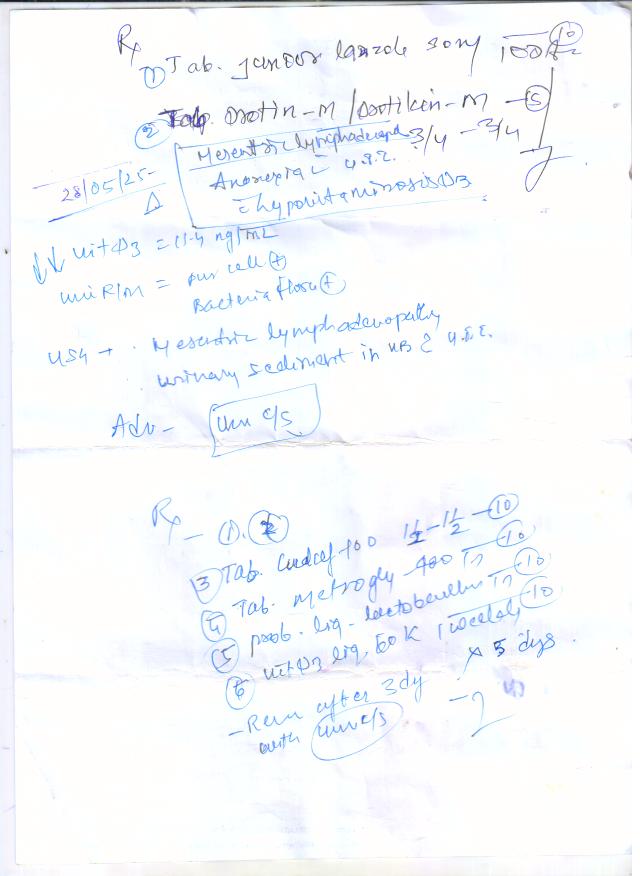 Rx
① Tab. Junior lanzole 30mg 1OD AC ⑩
② Tab. Drotin-M / Drotikin-M - ⑤
3/4 - 3/4
28/05/25-
Δ
Mesentric lymphadenopathy
Anorexia c̄ U.T.I.
c̄ hypovitaminosis D3
↓↓ Vit D3 = 11.4 ng/mL
Uri R/M = pus cell ⊕
Bacteria flora ⊕
USG → . Mesentric lymphadenopathy
urinary sediment in UB c̄ U.T.I.
Adv - Urin c/s
Rx - ①. ②
③ Tab. 100 1½-1½ - ⑩
④ Tab. Metrogyl 400 ⑩
⑤ prob. liq - lactobacillus ⑩
⑥ Vit D3 liq. 60K 1 ⑩
x 5 dys.
- Rev after 3 dy
with Urin c/s